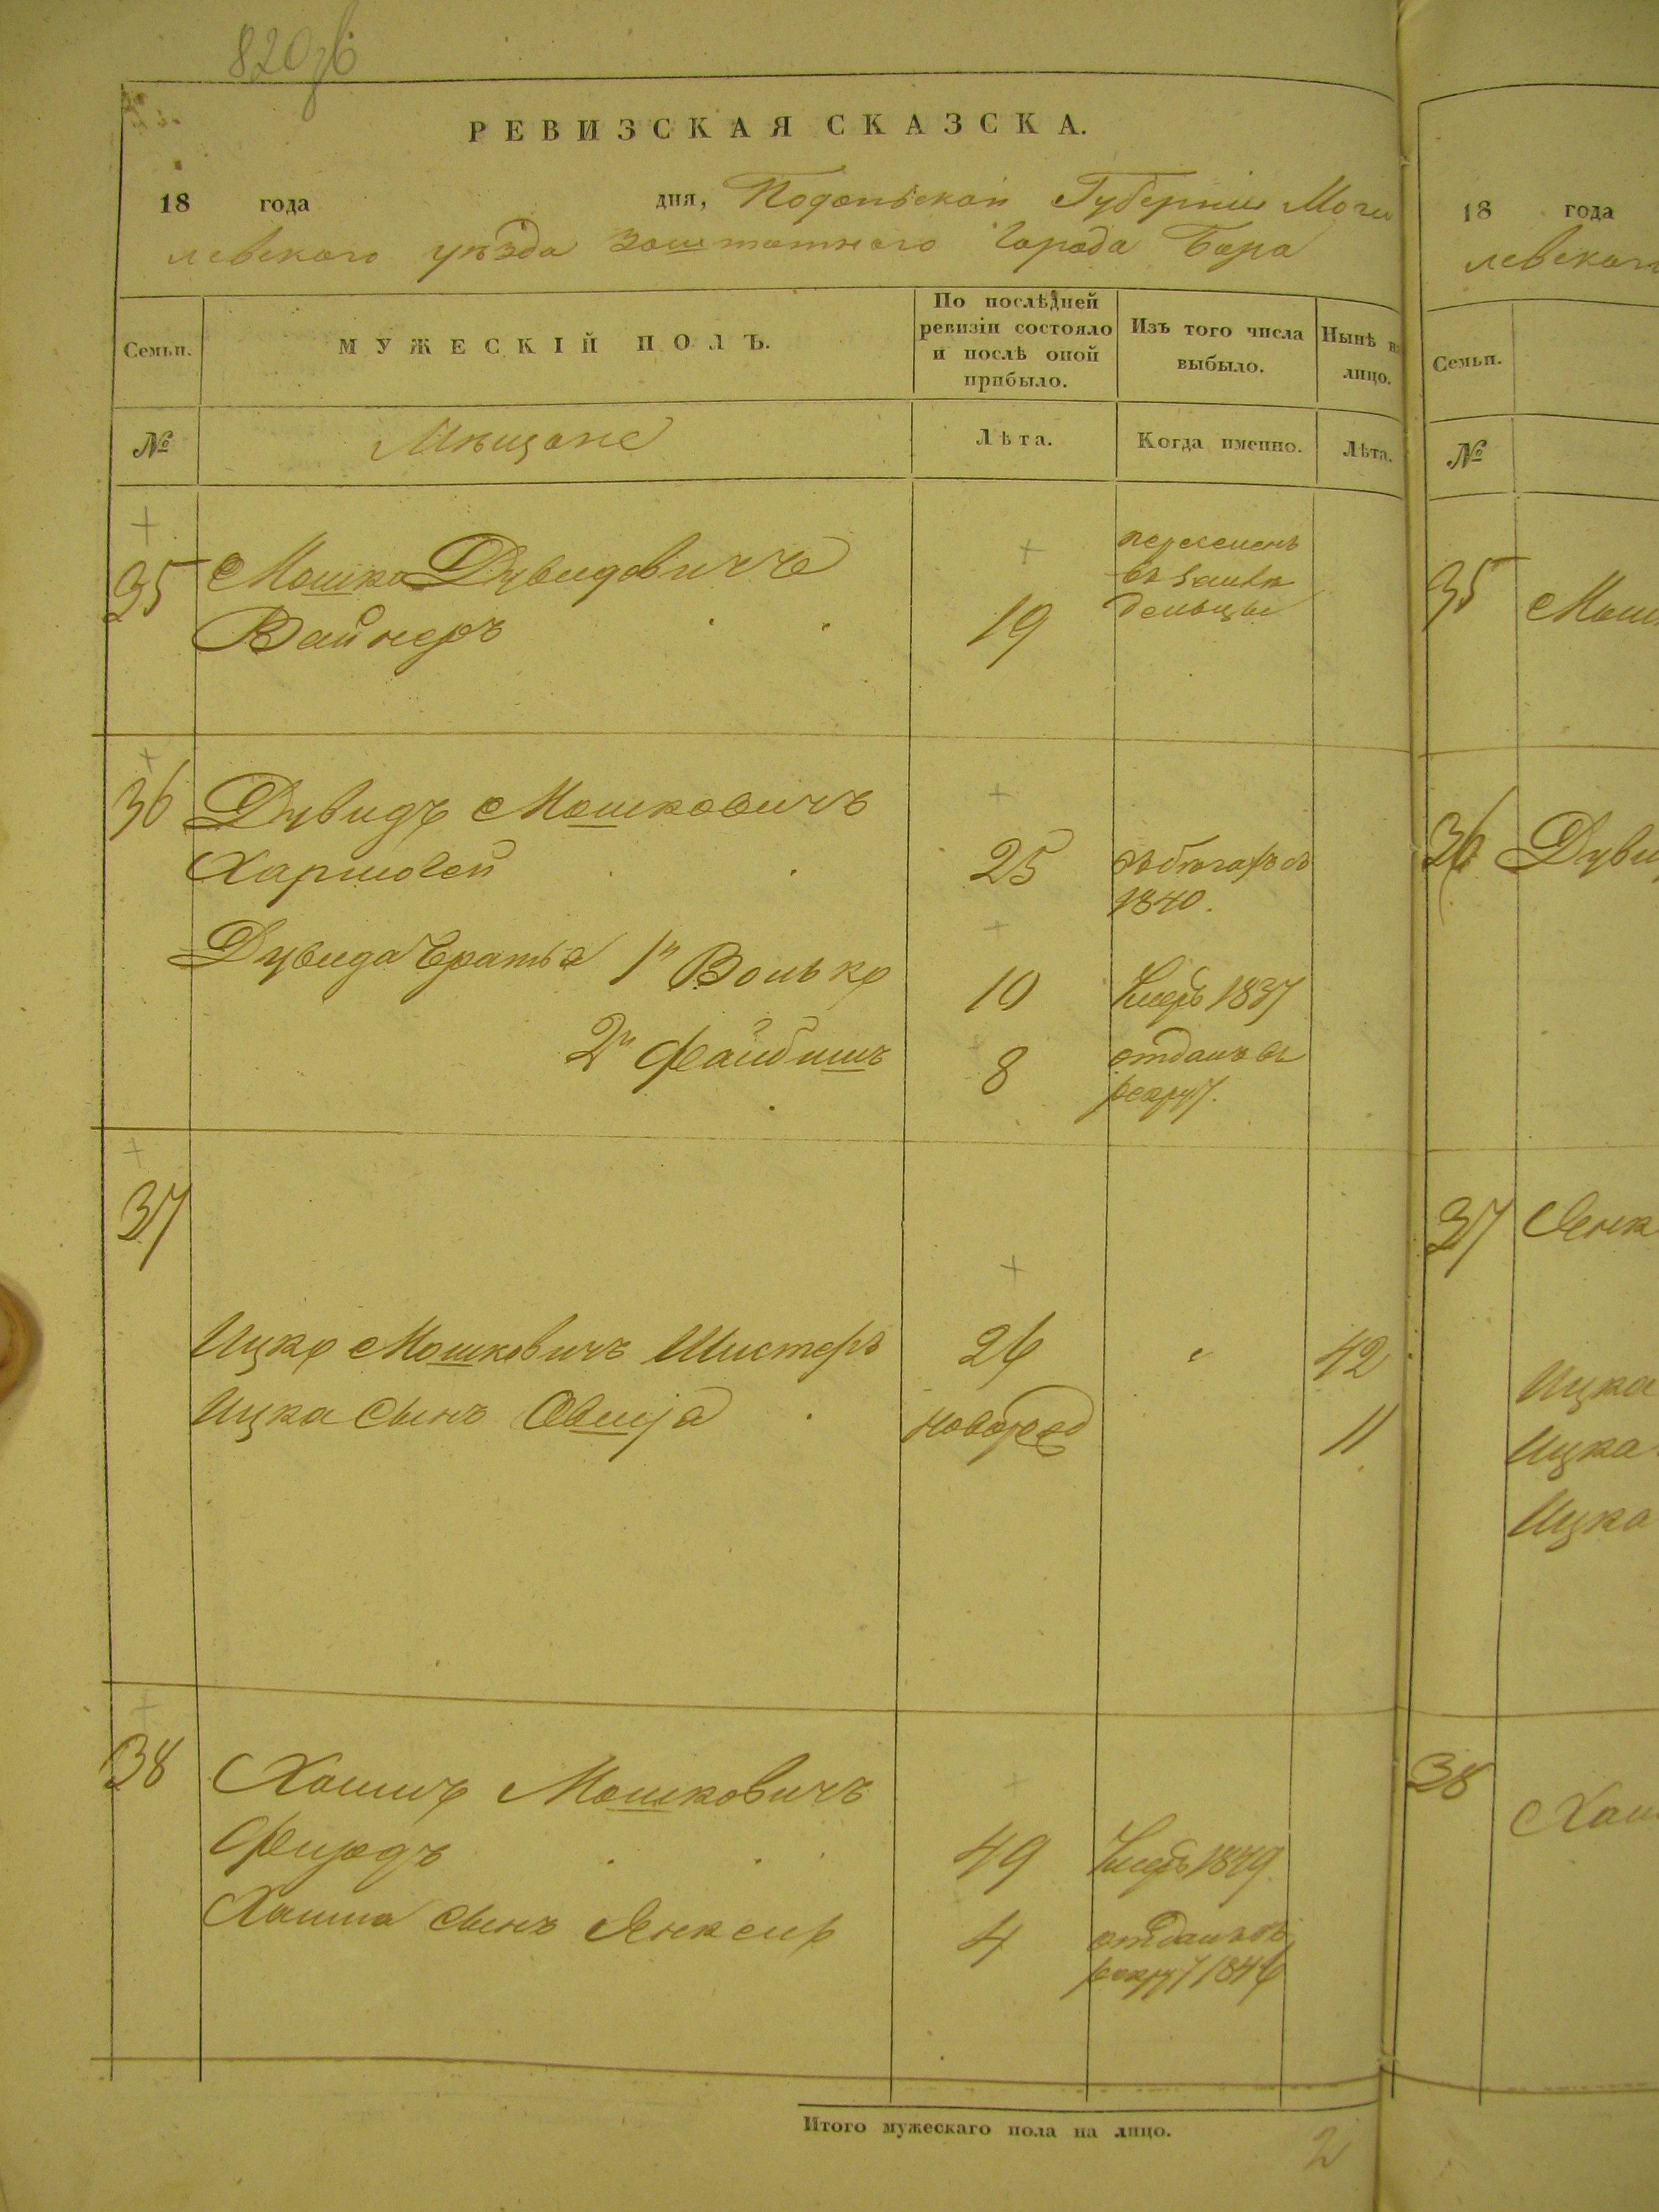 820об
РЕВИЗСКАЯ СКАЗСКА.
18 года дня, Подольской Губерніи Моги
левского уѣзда заштатного города Бара
Семьи.
МУЖЕСКІЙ ПОЛЪ.
По послѣдней
ревизіи состояло
и послѣ оной
прибыло.
Изъ того числа
выбыло.
Нынѣ на
лицо.
№
Мѣщане
Лѣта.
Когда именно.
Лѣта.
35 Мошко Дувидовичъ
Вайнеръ 19
переселенъ
въ
дельцы
36 Дувидъ Мошковичъ
25
1840.
Дувида братья 1й Волько 10 Умеръ 1837
2й Файбишъ 8 отданъ въ
рекру.
37
Ицко Мошковичъ Шистеръ 26 42
Ицка сынъ Овшіа новорож 11
38 Хаимъ Мошковичъ
49 Умеръ 1849
Хаима сынъ Янкель 4 отданъ въ
рекру 1846
Итого мужескаго пола на лицо. 2
18 года
левского
Семьи.
№
35 Мош
36 Дуви
37 Янк
Ицка
Ицка
Ицка
38
Хаи